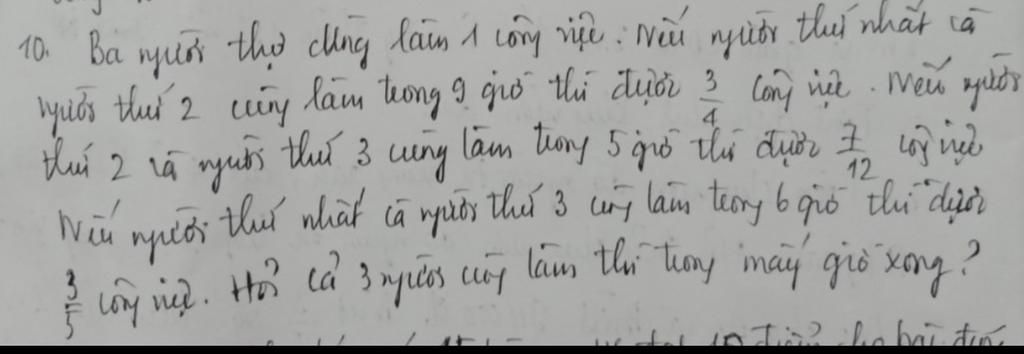 10. Ba người thợ cùng làm 1 công việc. Nếu người thứ nhất và
người thứ 2 cùng làm trong 9 giờ thì được 3/4 công việc. Nếu người
thứ 2 và người thứ 3 cùng làm trong 5 giờ thì được 7/12 công việc
Nếu người thứ nhất và người thứ 3 cùng làm trong 6 giờ thì được
3/5 công việc. Hỏi cả 3 người cùng làm thì trong mấy giờ xong?